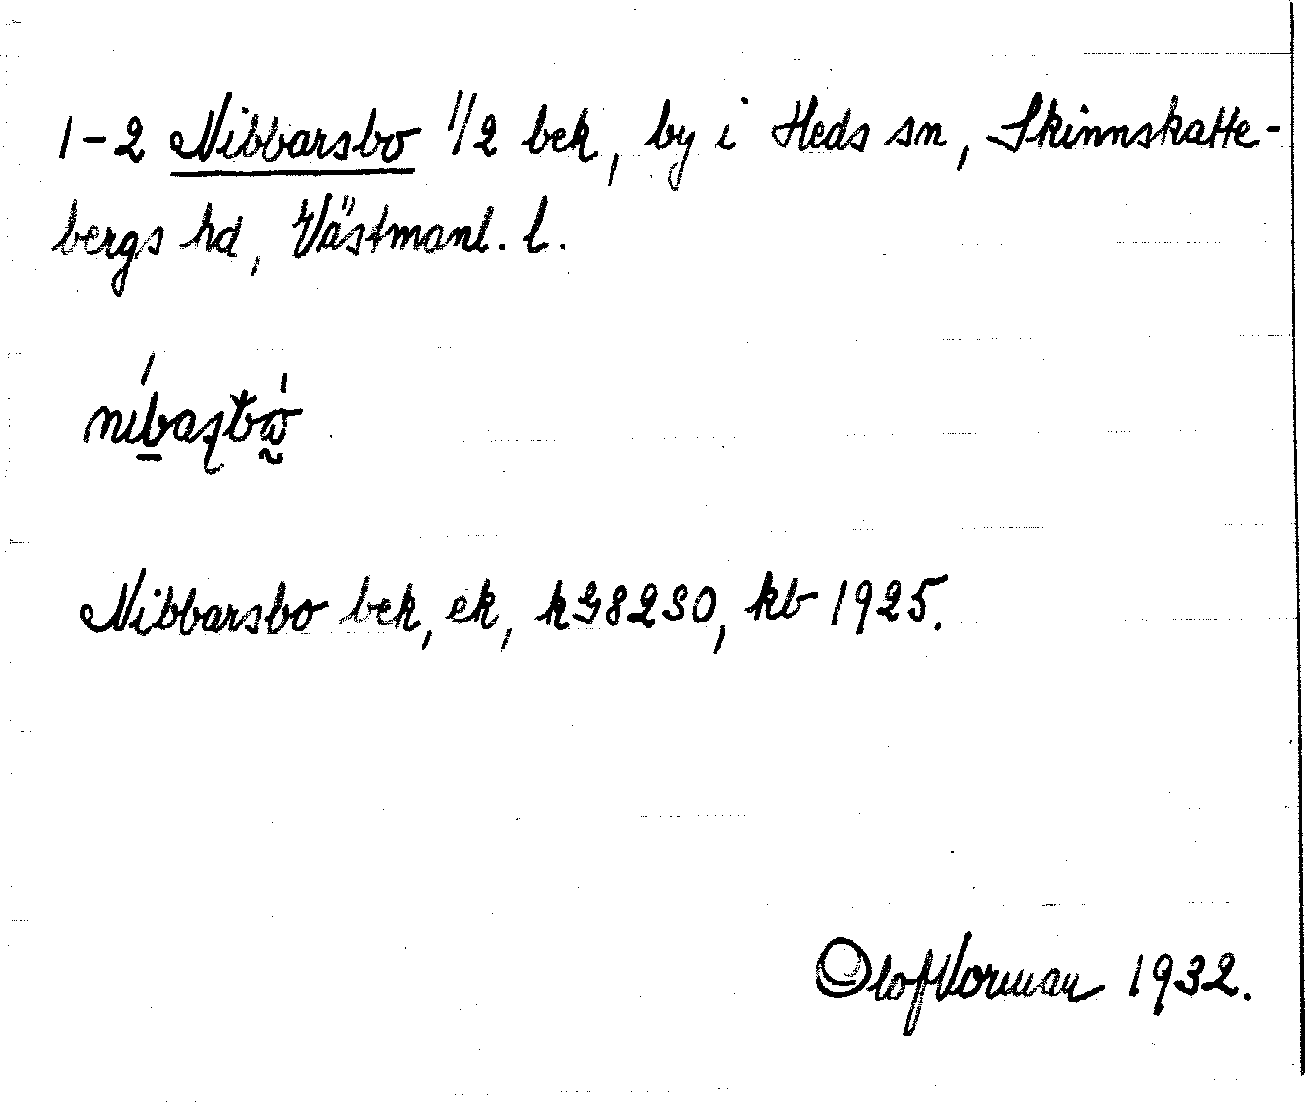 1-2 Nibbarsbo 1/2 bek, by i Heds sn, Skinnskatte-
bergs hd, Västmanl. l.
Nibbarsbo bek, ek, kG8230, kb 1925.
Olof Vorman 1932.